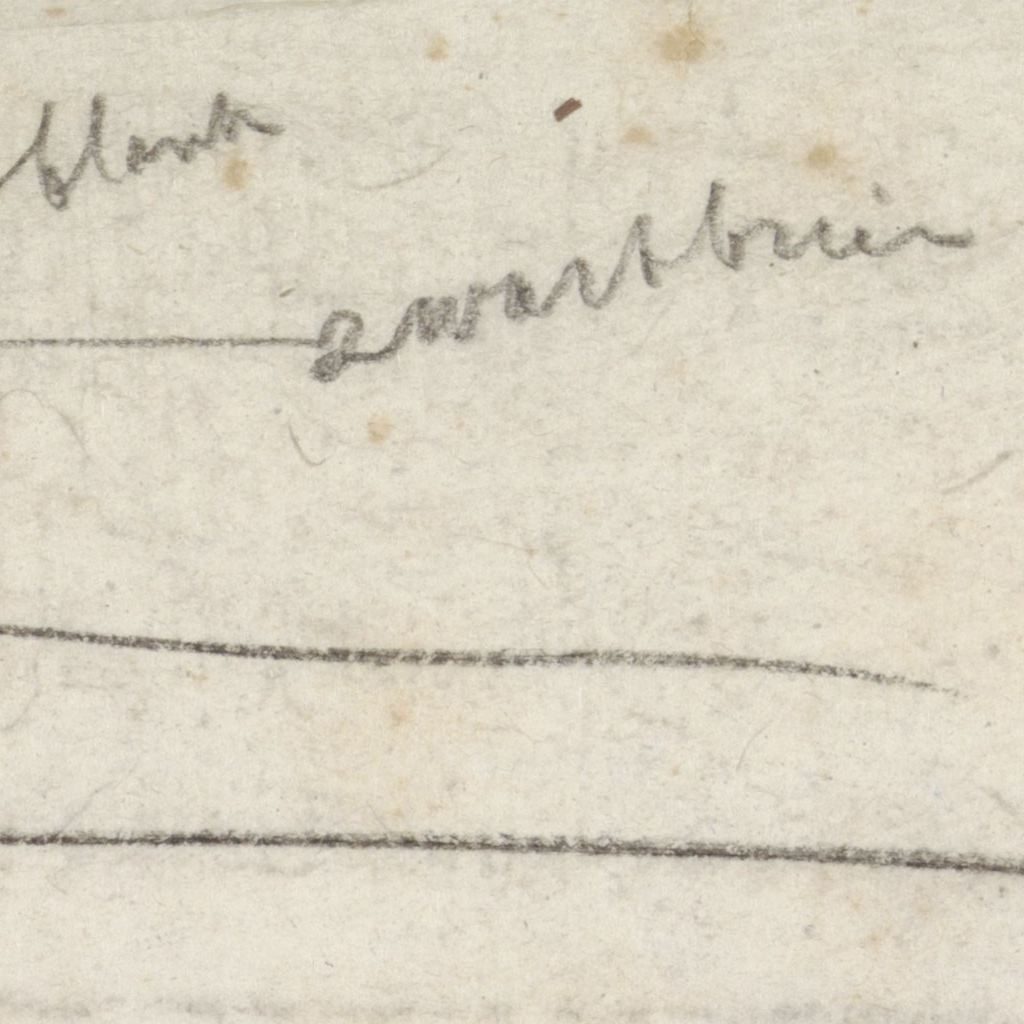 blank
zwartbruin